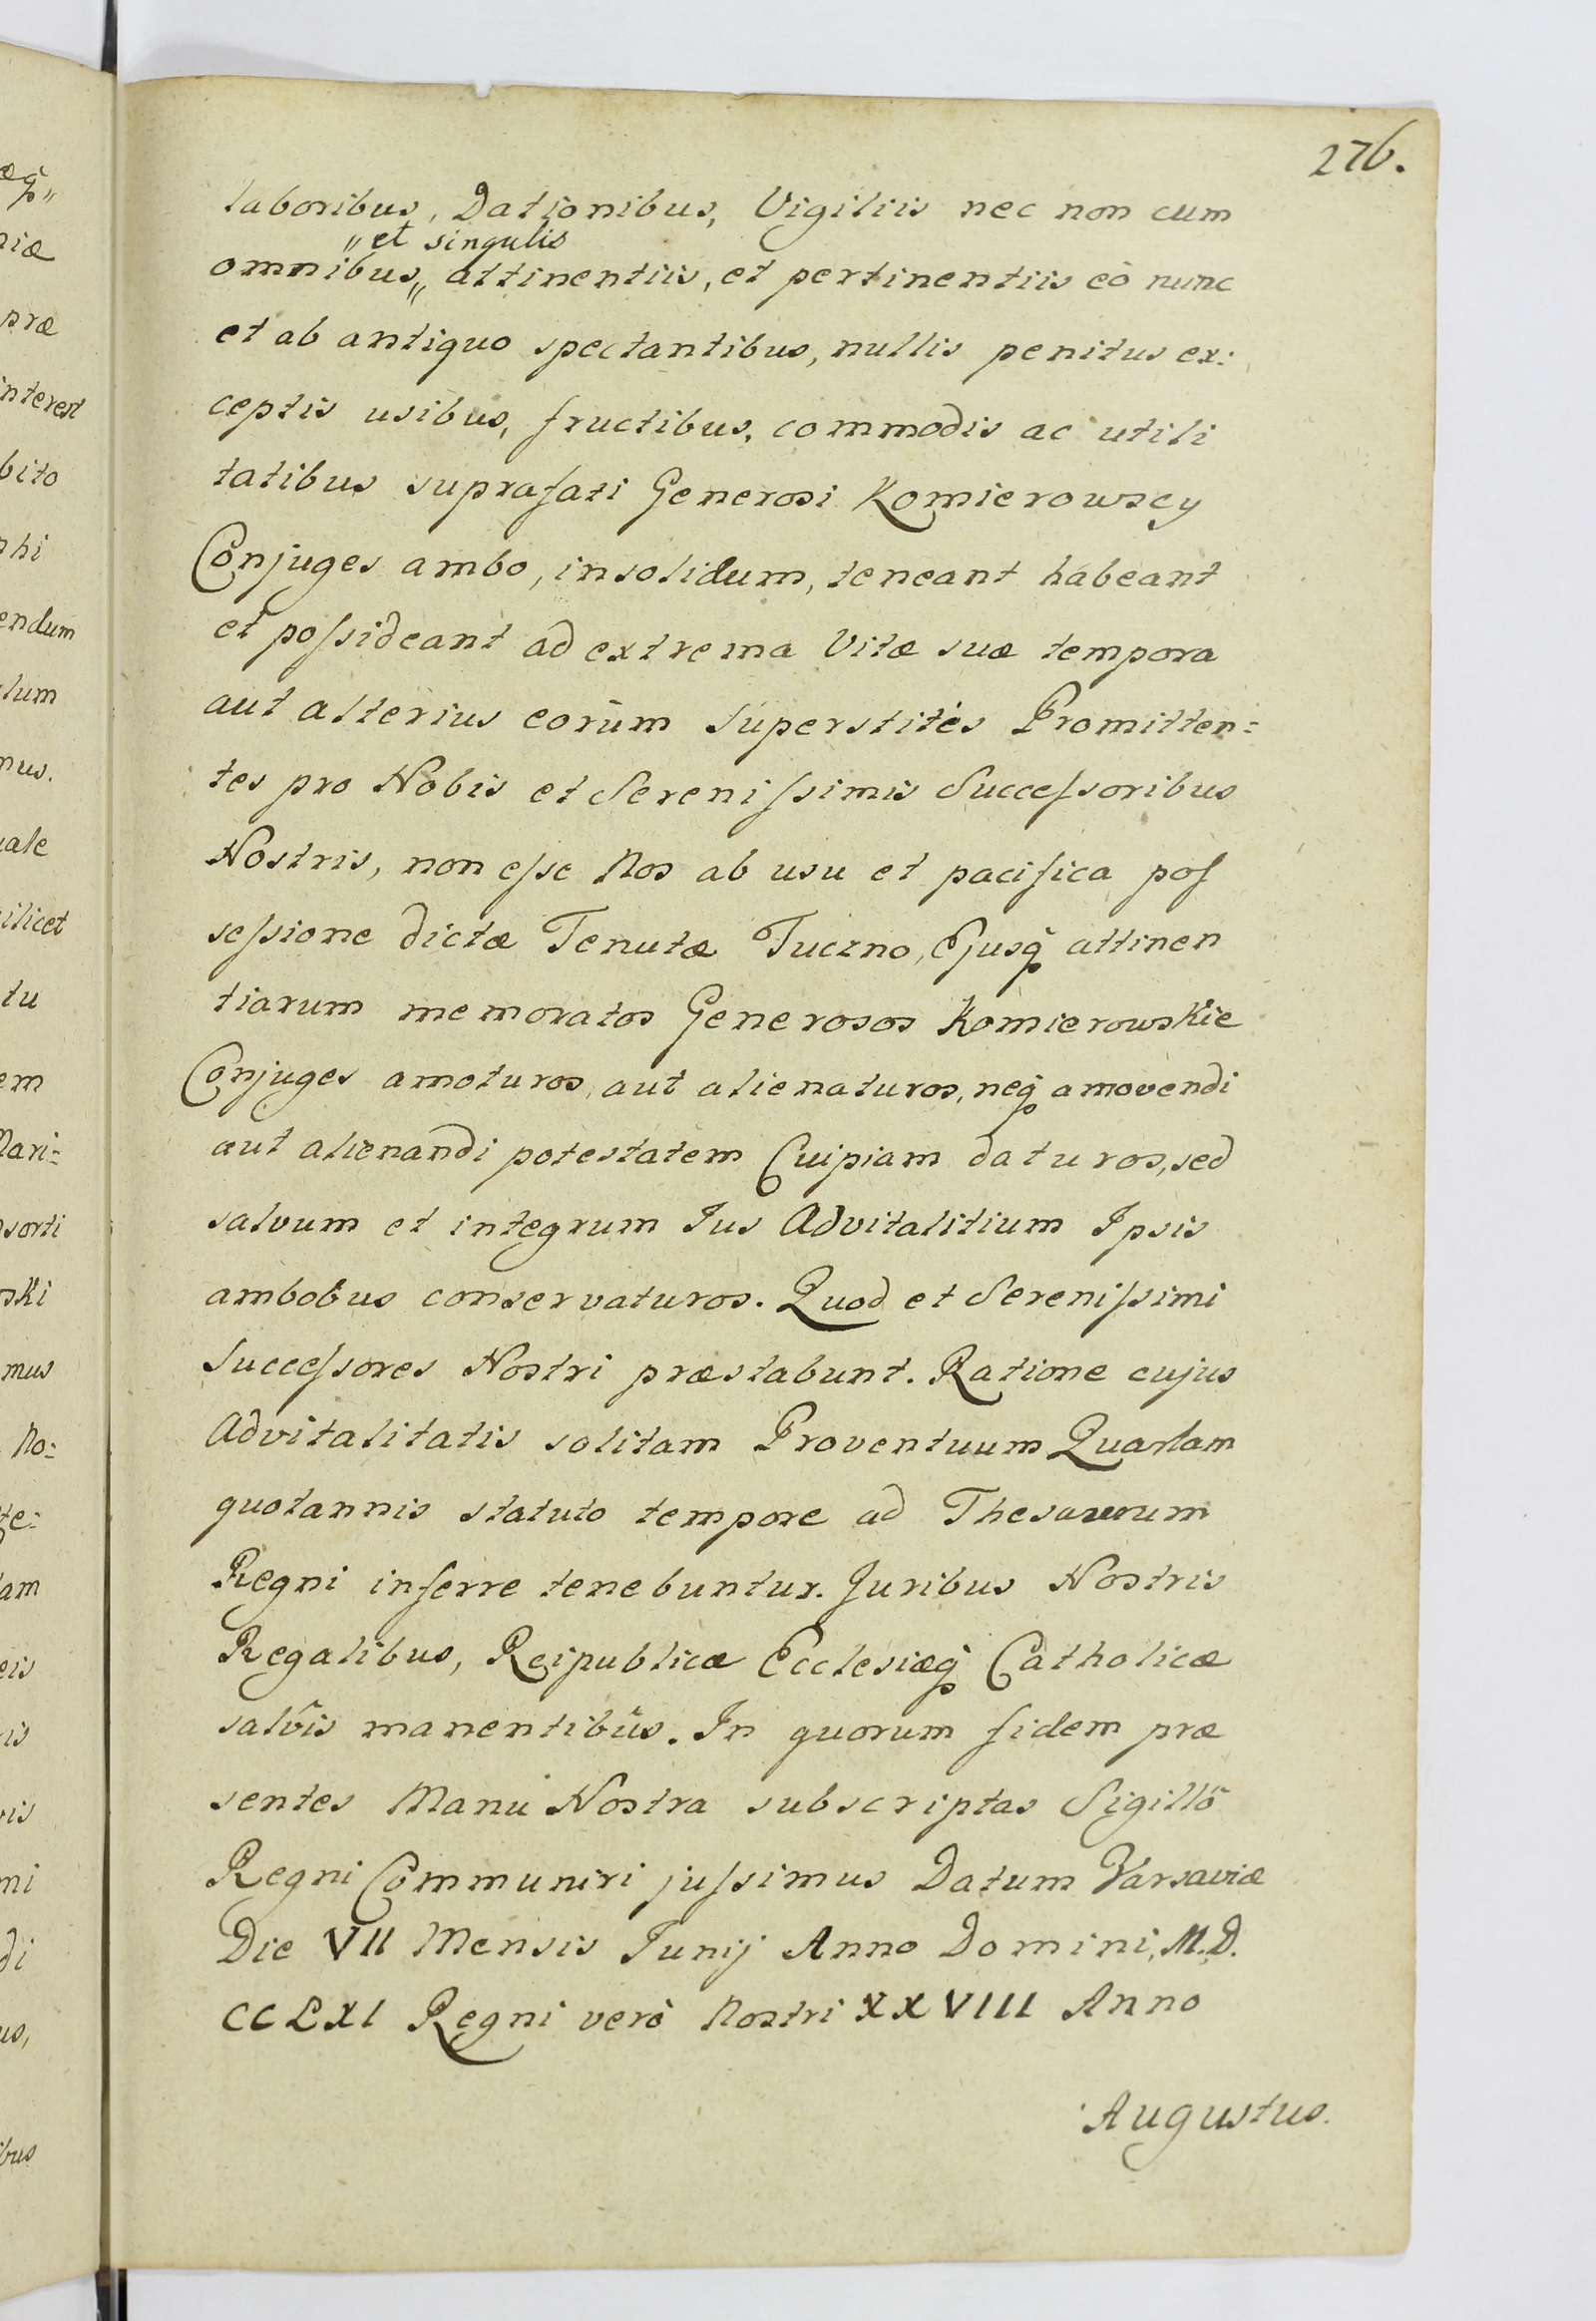 276.
laboribus, Dationibus, Vigiliis nec non cum
„et singulis
omnibus„ attinentiis, et pertinentiis eò nunc
et ab antiquo spectantibus, nullis penitus ex:
ceptis usibus, fructibus, commodis ac utili
tatibus suprafati Generosi Komierowscy
Conjuges ambo, insolidum, teneant habeant
et poſsideant ad extrema Vitæ suæ tempora
aut alterius eorum superstites Promitten:
tes pro Nobis et Sereniſsimis Succeſsoribus
Nostris, non eſse Nos ab usu et pacifica poſ
seſsione dictæ Tenutæ Tuczno, Ejusq̃ attinen
tiarum memoratos Generosos Komierowskie
Conjuges amoturos, aut alienaturos, neq̃ amovendi
aut alienandi potestatem Cuipiam daturos, sed
salvum et integrum Jus Advitalitium Ipsis
ambobus conservaturos. Quod et Sereniſsimi
Succeſsores Nostri præstabunt. Ratione cujus
Advitalitatis solitam Proventuum Quartam
quotannis statuto tempore ad Thesaurum
Regni inferre tenebuntur. Juribus Nostris
Regalibus, Reipublicæ Ecclesiæq̃ Catholicæ
salvis manentibus. In quorum fidem præ
sentes Manu Nostra subscriptas Sigillô
Regni Communiri juſsimus Datum Varsaviæ
Die VII Mensis Junij Anno Domini, M.D.
CCLXI Regni verò Nostri XXVIII Anno
Augustus.
æq̃„
niæ
præ
interest
bito
phi
endum
lum
mus.
uale
ilicet
tu
em
Mari:
sorti
ski
mus
No:
te:
am
eis
is
vis
mi
di
us,
ibus